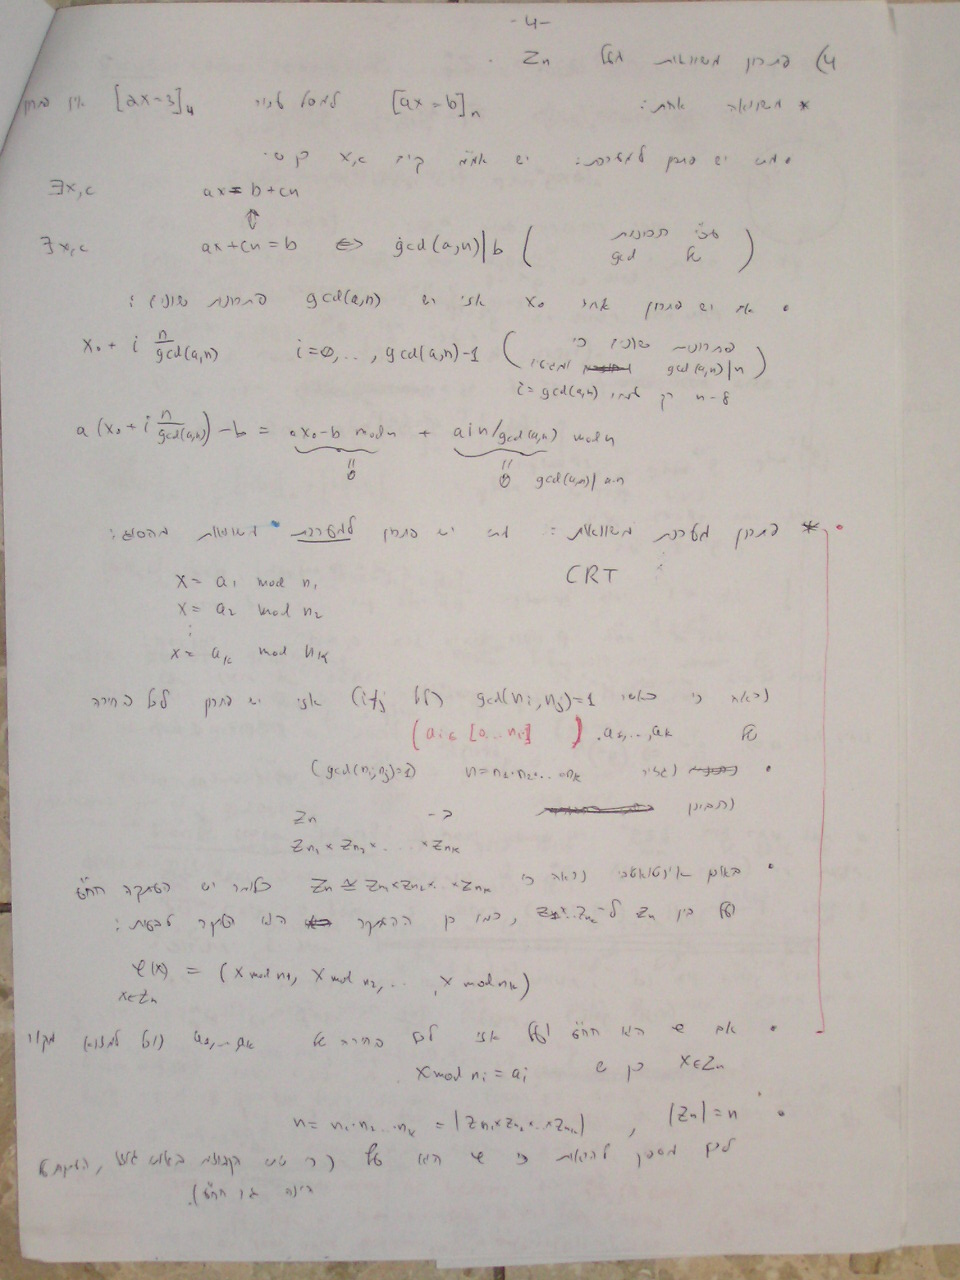 -4-
4) פתרון משוואות מעל Zn .
* משוואה אחת: [ax=b]n למשל עבור [2x=3]4 אין פתרון
• מתי יש פתרון למערכת: יש אמ"מ קיים x,c כך ש-
∃x,c ax = b+cn
⇕
∃x,c ax+cn=b ⇔ gcd(a,n)|b ( תכונות של gcd )
• אם יש פתרון אחד x₀ אזי יש gcd(a,n) פתרונות שונים :
x₀ + i n/gcd(a,n) i=0,..,gcd(a,n)-1 ( פתרונות שונים כי gcd(a,n)|n
i=gcd(a,n) רק n-ל )
a(x₀+i n/gcd(a,n))-b = ax₀-b mod n + ain/gcd(a,n) mod n
0 0 gcd(a,n)|a·n
* פתרון מערכת משוואות : מתי יש פתרון למערכת משוואות מהסוג:
CRT
x= a₁ mod n₁
x= a₂ mod n₂
⋮
x= aₖ mod nₖ
נראה כי כאשר gcd(ni,nj)=1 (לכל i≠j) אזי יש פתרון לכל בחירה
של a₁,..,aₖ. (ai∈[0...ni])
• נגדיר n=n₁·n₂·...·nₖ (gcd(ni,nj)=1)
נתבונן
Zn ב-
Zn₁×Zn₂×...×Znₖ
• באופן נראה כי Zn≅Zn₁×Zn₂×..×Znₖ כלומר יש העתקה חח"ע
ועל בין Zn ל- , כמו כן ההעתקה היא
φ(x) = (x mod n₁, x mod n₂,..., x mod nₖ)
x∈Zn
• אם φ היא חח"ע ועל אזי לכל בחירה של a₁,..,aₖ נוכל למצוא מקור
x∈Zn כך ש x mod ni = ai
• |Zn|=n , n=n₁·n₂...·nₖ=|Zn₁×Zn₂×..×Znₖ|
לכן מספיק להראות כי φ היא על (כי שתי הקבוצות באותו גודל,
חח"ע).